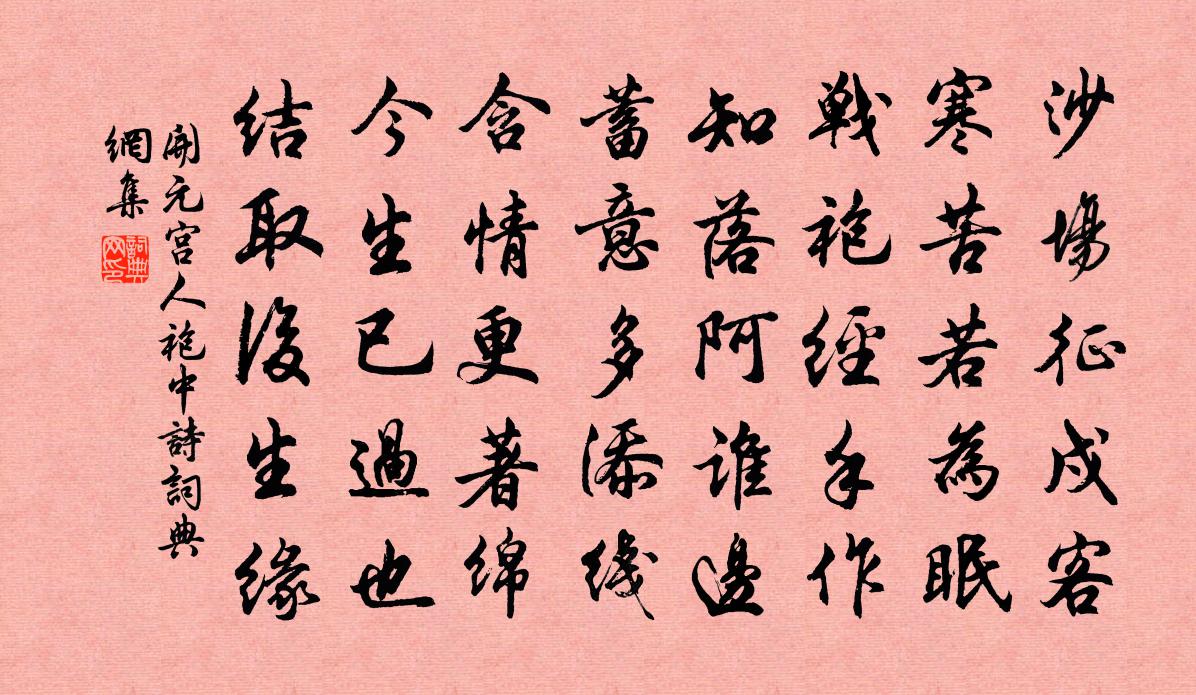 沙場征戍客
寒苦若為眠
戰袍經手作
知落阿誰邊
蓄意多添綫
含情更著綿
今生已過也
結取後生緣
開元宮人袍中詩詞典
網集
詞典
网印